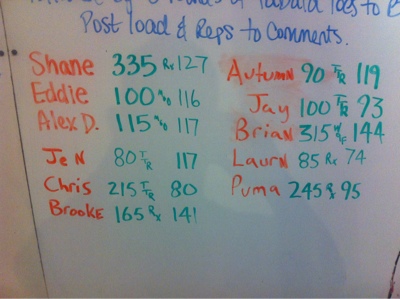 Rounds of Tabata Toes to B
Post load & Reps to Comments.
Shane 335 Rx 127
Eddie 100 116
Alex D. 115 117
Jen 80 T/R 117
Chris 215 T/R 80
Brooke 165 Rx 141
Autumn 90 T/R 119
Jay 100 T/R 93
Brian 315 144
Laurn 85 Rx 74
Puma 245 Rx 95